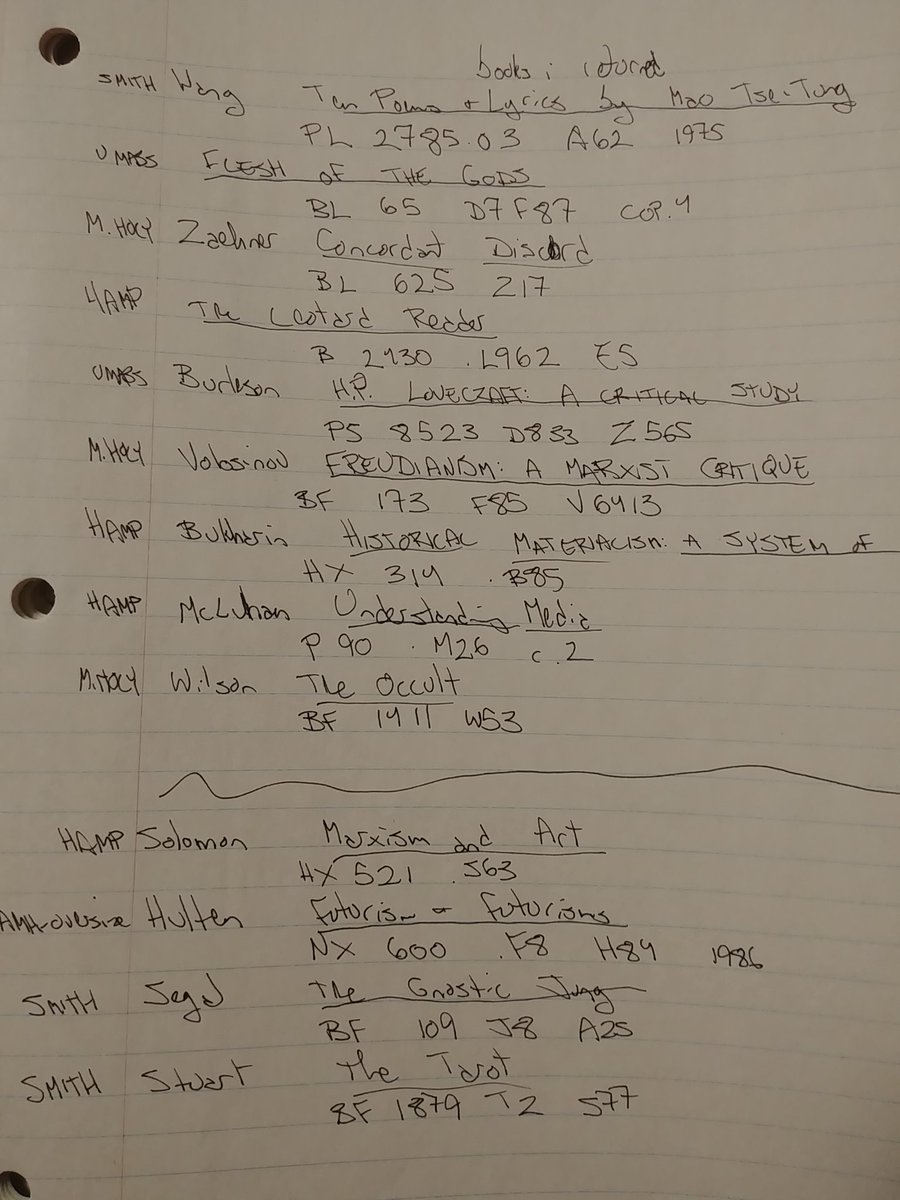 books i returned
SMITH Wang Ten Poems + Lyrics by Mao Tse-Tung
PL 2785.03 A62 1975
UMASS FLESH OF THE GODS
BL 65 D7 F87 COP.4
M.HOLY Zaehner Concordant Discord
BL 625 Z17
HAMP The Leotard Reader
B 2430 .L962 E5
UMASS Burleson H.P. LOVECRAFT: A CRITICAL STUDY
PS 8523 D833 Z565
M.HOLY Volosinov FREUDIANISM: A MARXIST CRITIQUE
BF 173 F85 V6413
HAMP Bukharin HISTORICAL MATERIALISM: A SYSTEM OF
HX 314 .B85
HAMP McLuhan Understanding Media
P 90 .M26 c.2
M.HOLY Wilson The Occult
BF 1411 W53
HAMP Solomon Marxism and Art
HX 521 .S63
AMH-oversize Hulten Futurism & Futurisms
NX 600 .F8 H84 1986
SMITH Segal The Gnostic Jung
BF 109 J8 A25
SMITH Stuart The Tarot
BF 1879 T2 S77